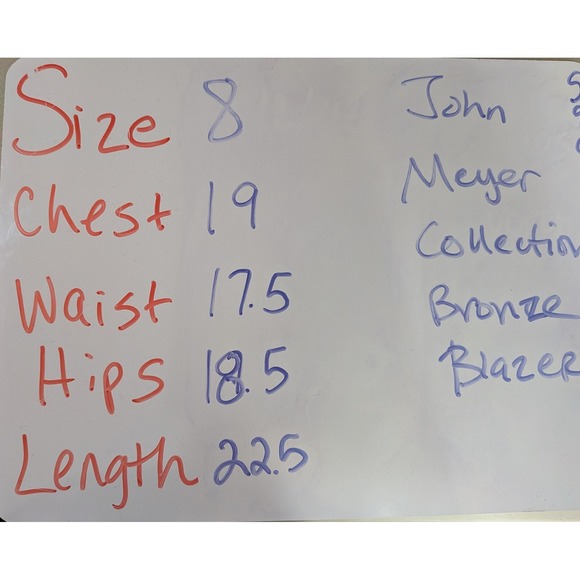 Size 8
Chest 19
Waist 17.5
Hips 18.5
Length 22.5
John
Meyer
Collection
Bronze
Blazer